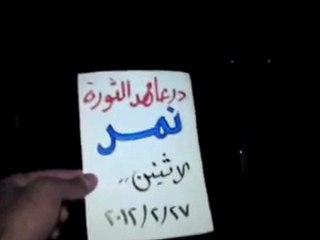 درعا مهد الثورة
نمر
الاثنين..
٢٠١٢/٢/٢٧